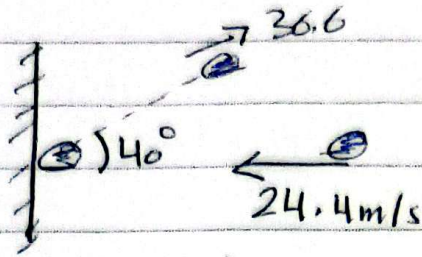 36.6
40°
24.4m/s